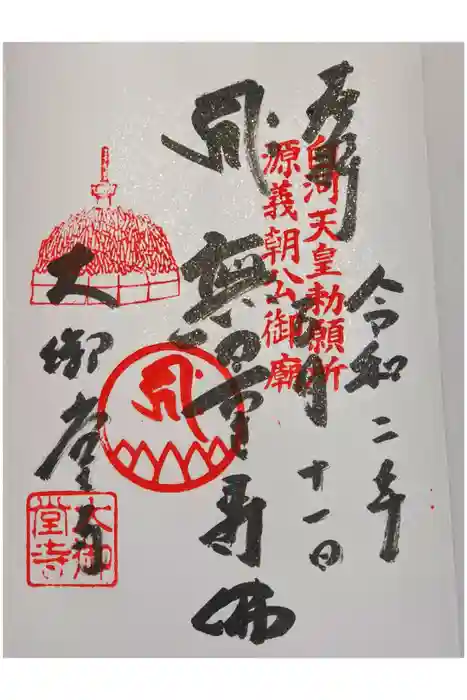 白河天皇勅願所
源義朝公御廟
令和二年
十一日
ह्रीः
無量寿佛
ह्रीः
大御堂寺
大御
堂寺